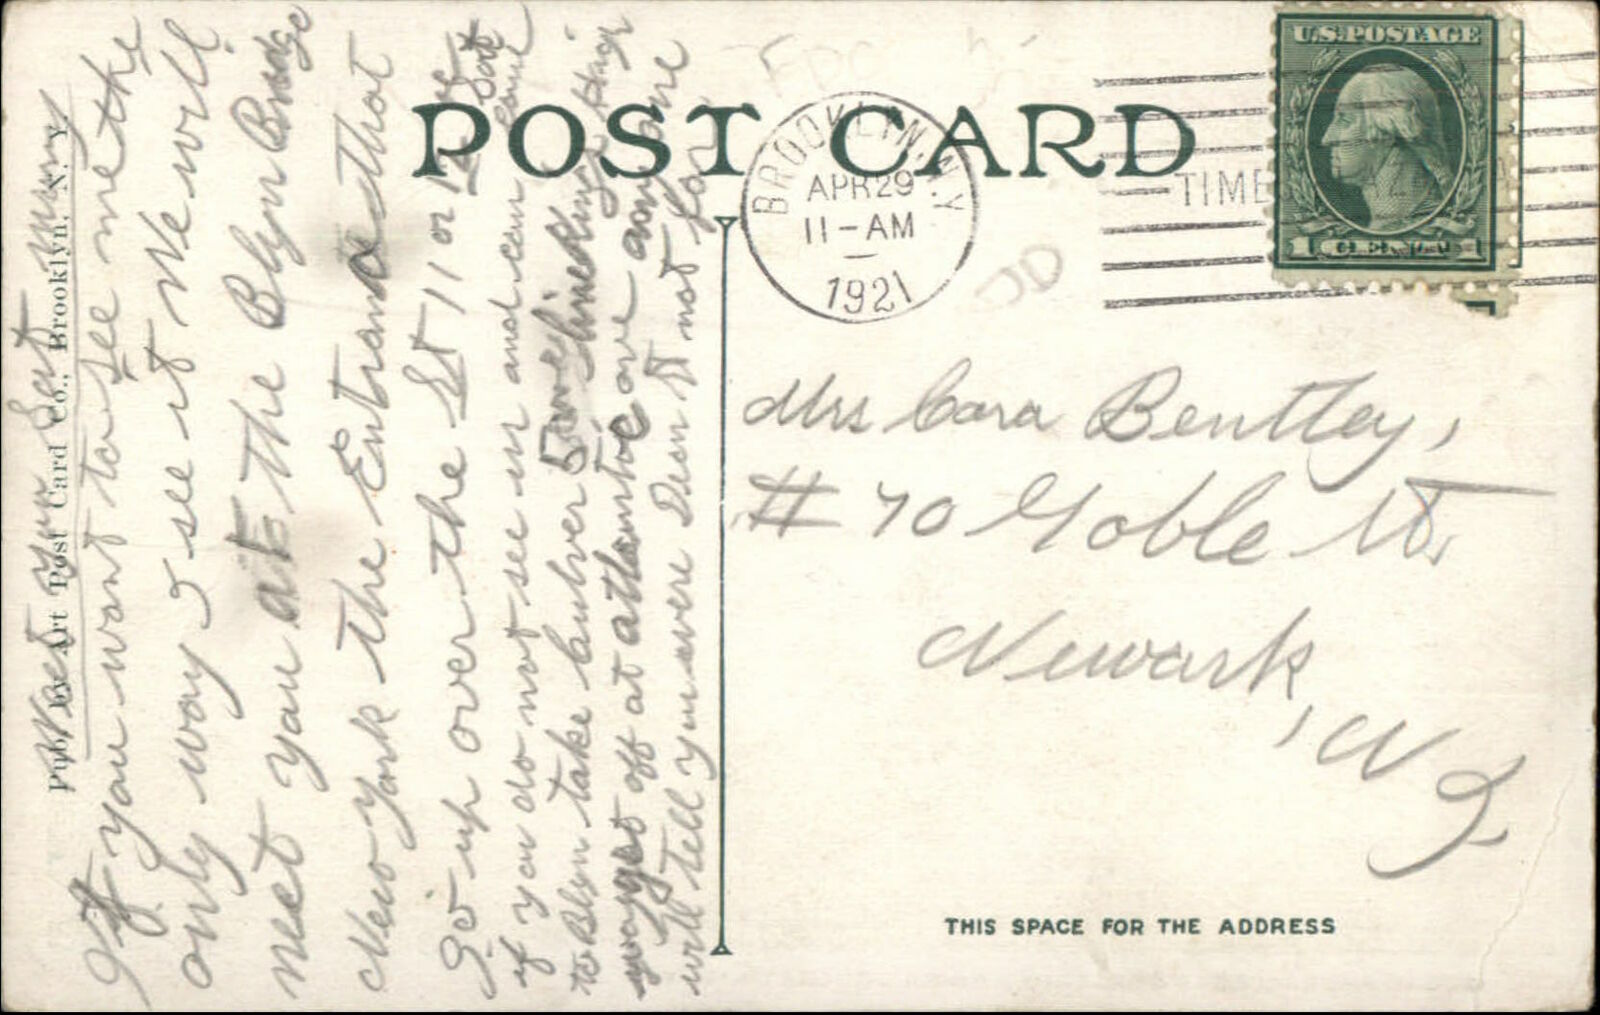 POST CARD
U.S. POSTAGE
1 CENTS 1
BROOKLYN, N.Y.
APR 29
11-AM
1921
TIME
Mrs Cora Bentley,
# 70 Goble St.
Newark,
N J
THIS SPACE FOR THE ADDRESS
Pub. by Art Post Card Co., Brooklyn, N. Y.
If you want to see me the
only way I see it We will
meet you at the Blyn Bridge
New York the Entrance that
Go up over the St 11 or 12 Sat
if you do not see us and can
to Blyn take Culver
get off at atlantic ave anyone
will tell you were Dean St not far